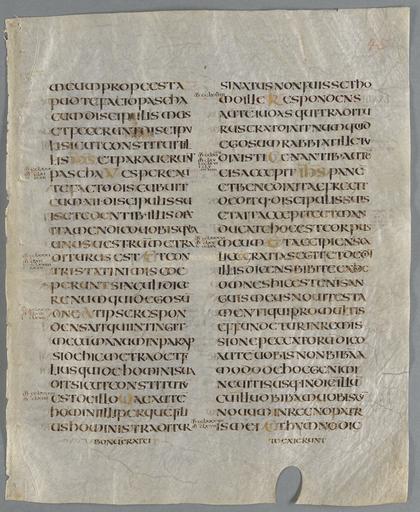 MEUMPROPEESTA
PUDTEFACIOPASCHA
CUMDISCIPULISMEIS
ETFECERUNTDISCIPU
LISICUTCONSTITUITIL
LISIHSETPARAUERUNT
PASCHAUESPEREAU
TEFACTODISCUBUIT
CUMXIIDISCIPULISSU
ISETEDENTIBILLISDIX
ITAMENDICOUOBISQUIA
UNUSUESTRUMMETRA
DITURUSESTETCON
TRISTATINIMISCOE
PERUNTSINGULIDICE
RENUMQUIDEGOSU
DNEATIPSERESPON
DENSAITQUIINTINGIT
MECUMMANUMINPARAP
SIDEHICMETRADETFI
LIUSQUIDEHOMINISUA
DITSICUTCONSTITUTU
ESTDEILLOUAEAUTE
HOMINIILLIPERQUEFILI
USHOMINISTRADITUR
BONUERATEI
SINATUSNONFUISSETHO
MOILLERESPONDENS
AUTEIUDASQUITRADITU
RUSERATDIXITNUMQUID
EGOSUMRABBIAITILLITU
DIXISTICENANTIBAUTE
EISACCEPITIHSPANE
ETBENEDIXITACFREGIT
DEDITQ·DISCIPULISSUIS
ETAITACCIPITEETMAN
DUCATEHOCESTCORPUS
MEUMETACCIPIENSCA
LICEGRATIASEGITETDEDI
ILLISDICENSBIBITEEXHOC
OMNESHICESTENISAN
GUISMEUSNOUITESTA
MENTIQUIPROMULTIS
EFFUNDETURINREMIS
SIONEPECCATORDICO
AUTEUOBISNONBIBAA
MODODEHOCGENIMI
NEUITISUSQINDIEILLU
CUILLUBIBAMUOBISCU
NOUUMINREGNOPATR
ISMEIETHYMNODIC
TOEXIERUNT